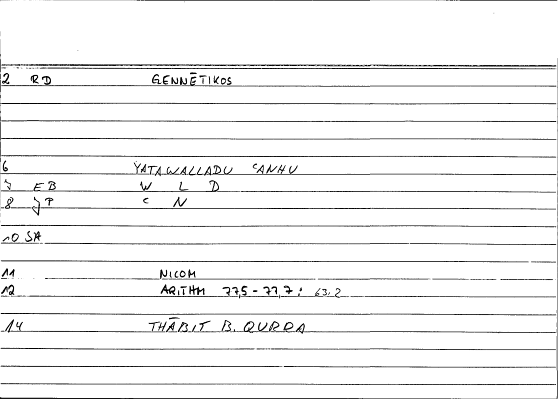 2 RD GENNĒTIKOS
6 YATAWALLADU ʿANHU
7 EB W L D
8 JP ʿ N
10 SA
11 NICOM
12 ARITHM 77,5-77,7: 63.2
14 THĀBIT B. QURRA